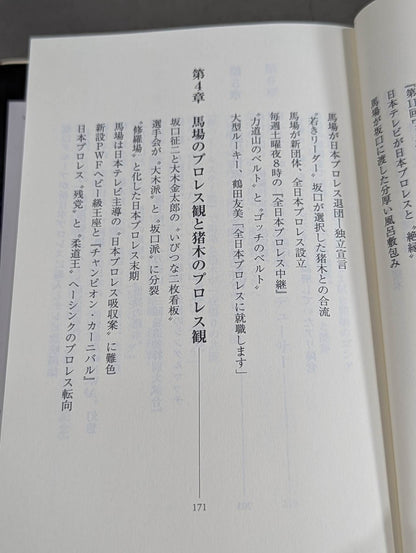 〔第11回ワ
日本テレビが日本プロレスと〝絶縁〟
馬場が坂口に渡した分厚い風呂敷包み
馬場が日本プロレス退団―独立宣言
〝若きリーダー〟坂口が選択した猪木との合流
馬場が新団体、全日本プロレス設立
毎週土曜夜8時の『全日本プロレス中継』
〝力道山のベルト〟と〝ゴッチのベルト〟
大型ルーキー、鶴田友美「全日本プロレスに就職します」
第4章 馬場のプロレス観と猪木のプロレス観 171
坂口征二と大木金太郎の〝いびつな二枚看板〟
選手会が〝大木派〟と〝坂口派〟に分裂
〝修羅場〟と化した日本プロレス末期
馬場は日本テレビ主導の〝日本プロレス吸収案〟に難色
新設PWFヘビー級王座と『チャンピオン・カーニバル』
日本プロレス〝残党〟と〝柔道王〟ヘーシンクのプロレス転向